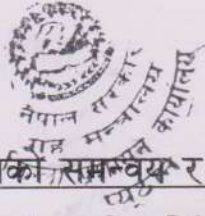 नेपाल सरकार
गृह मन्त्रालय
कार्यालय
प्यूठ
को समन्वय र